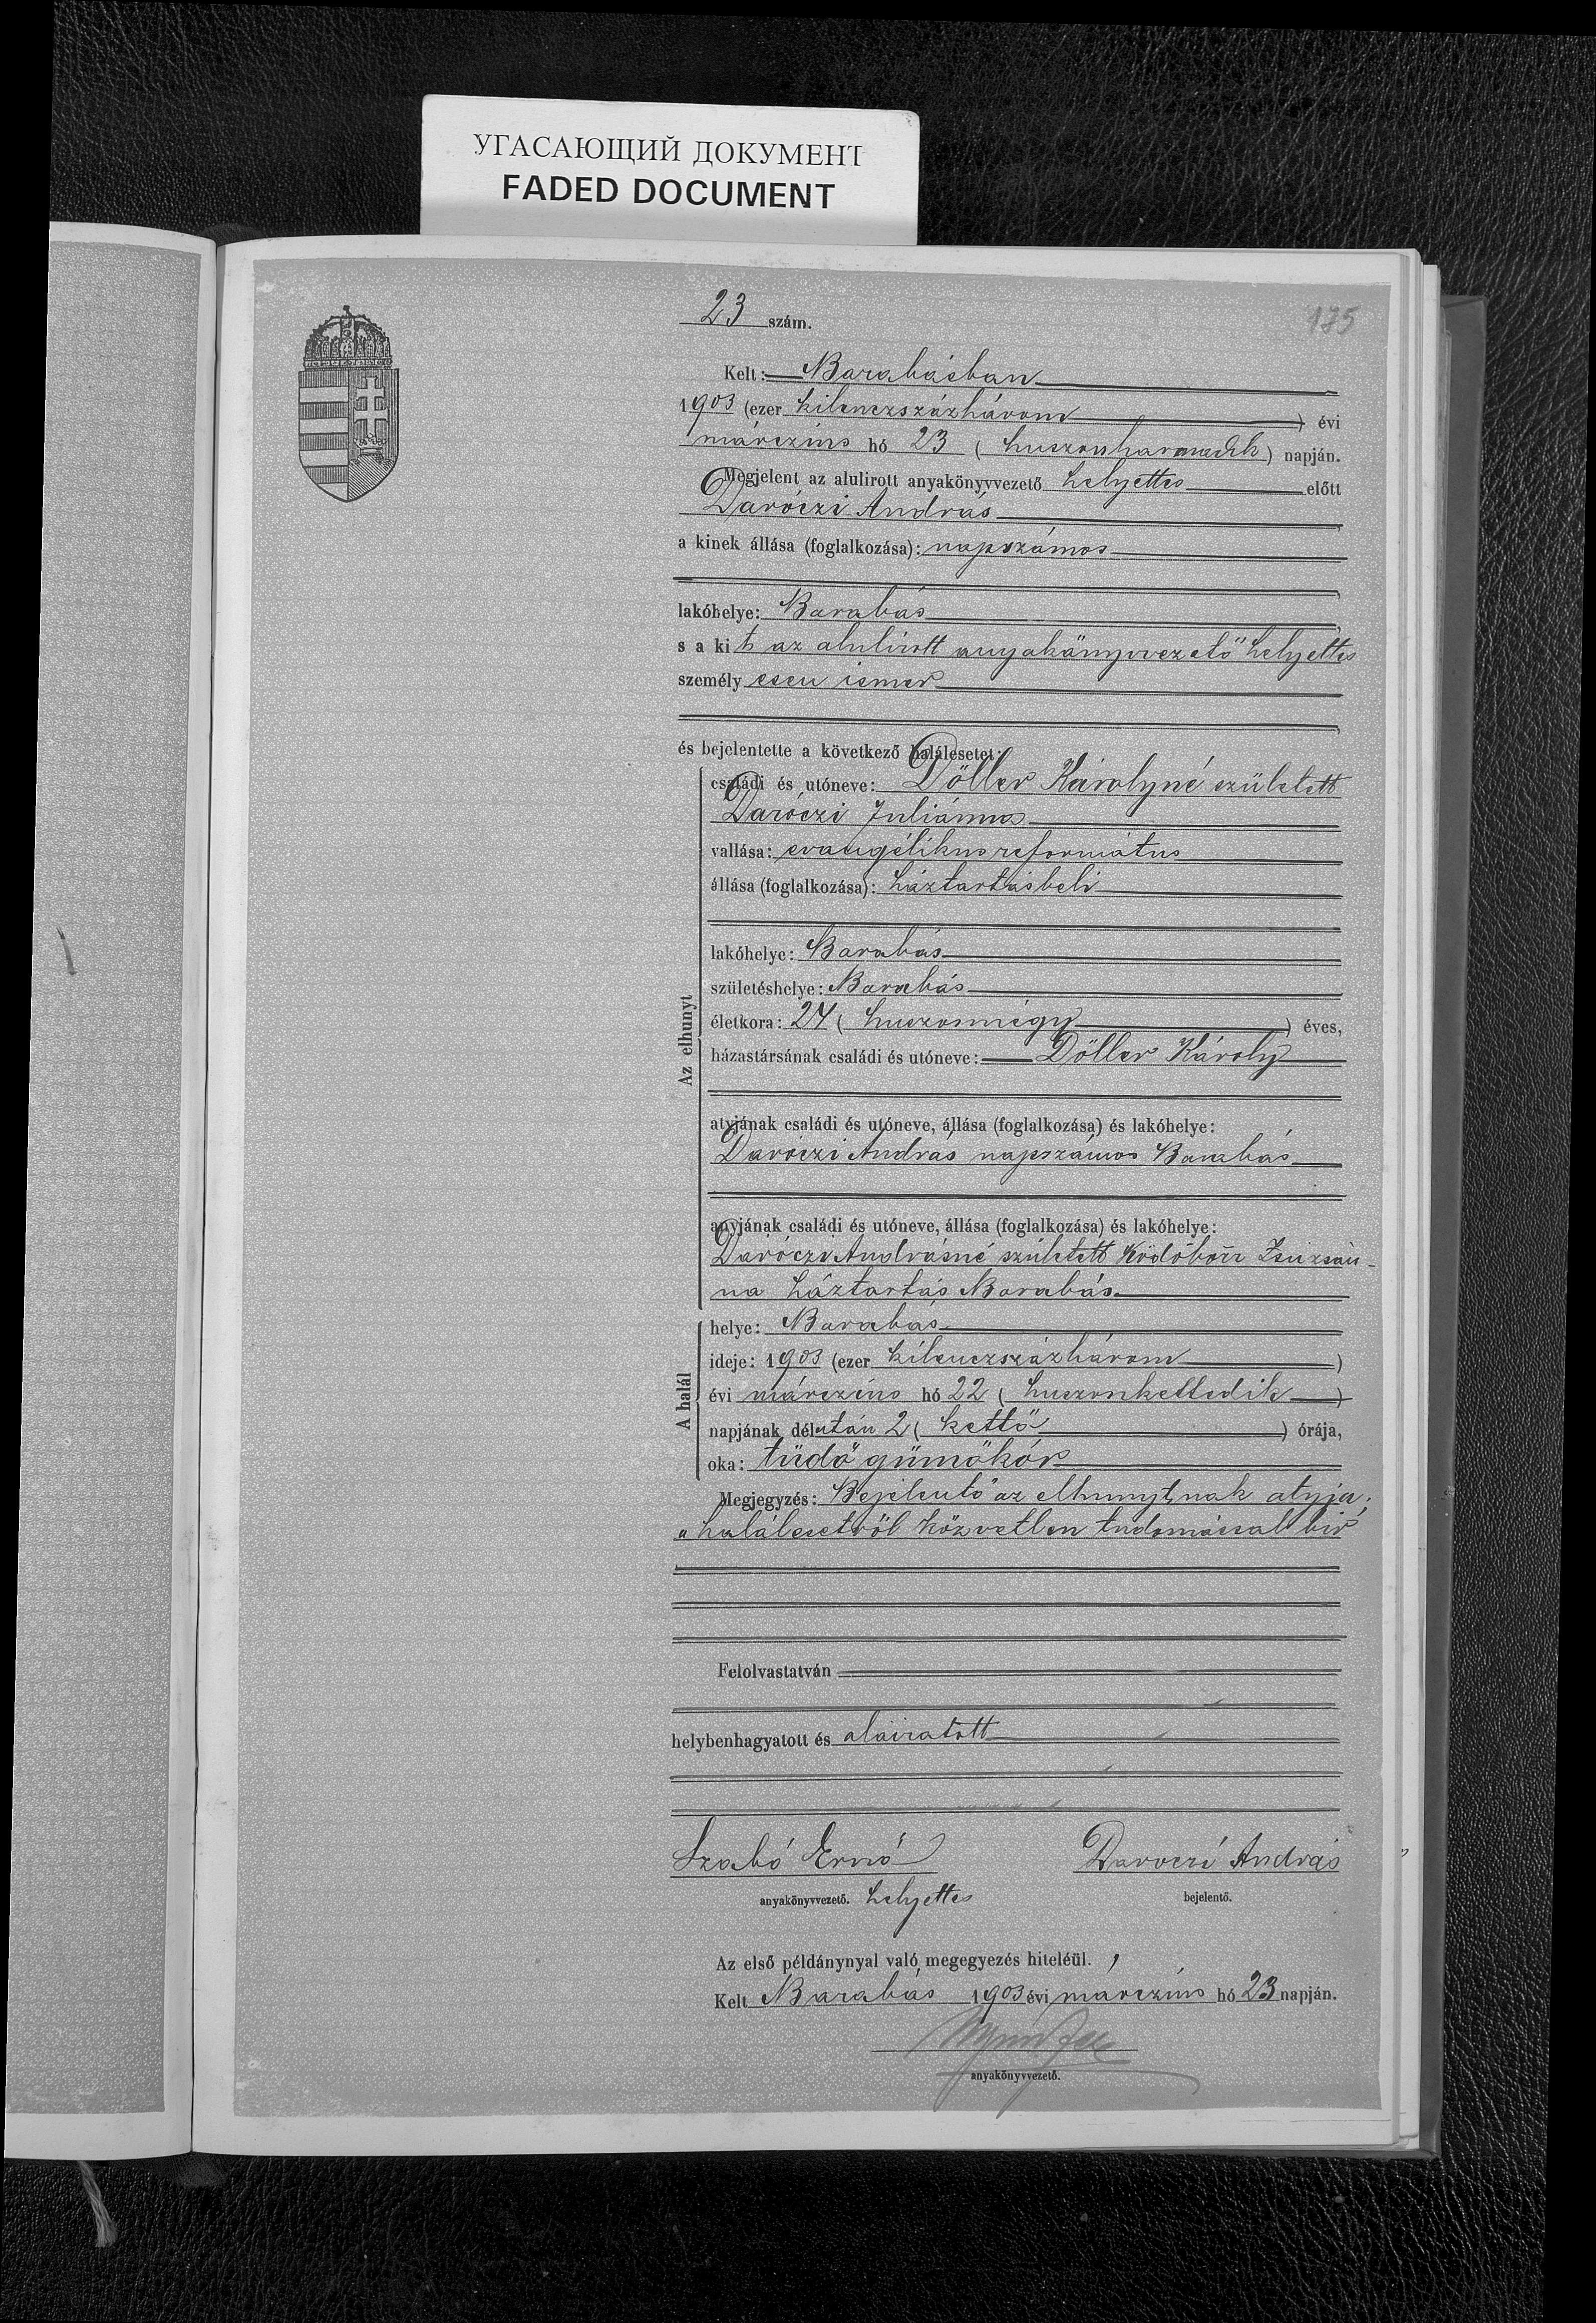 УГАСАЮЩИЙ ДОКУМЕНТ
FADED DOCUMENT
23 szám.
175
Kelt: Barabásban
1903 (ezer kilenczszázhárom ) évi
márczius hó 23 ( huszonharmadik ) napján.
Megjelent az alulirott anyakönyvvezető helyettes előtt
Daróczi András
a kinek állása (foglalkozása): napszámos
lakóhelye: Barabás
s a kit az alulirott anyakönyvvezető helyettes
személyesen ismer
és bejelentette a következő halálesetet:
Az elhunyt
családi és utóneve: Döller Károlyné született
Daróczi Juliánna
vallása: evangélikus református
állása (foglalkozása): háztartásbeli
lakóhelye: Barabás
születéshelye: Barabás
életkora: 24 ( huszonnégy ) éves,
házastársának családi és utóneve: Döller Károly
atyjának családi és utóneve, állása (foglalkozása) és lakóhelye:
Daróczi András napszámos Barabás
anyjának családi és utóneve, állása (foglalkozása) és lakóhelye:
Daróczi Andrásné született Ködöböcz Zsuzsán-
na háztartás Barabás
A halál
helye: Barabás
ideje: 1903 (ezer kilenczszázhárom )
évi márczius hó 22 ( huszonkettedik )
napjának délután 2 ( kettő ) órája,
oka: tüdő gümőkór
Megjegyzés: Bejelentő az elhunytnak atyja;
a halálesetről közvetlen tudomással bir
Felolvastatván
helybenhagyatott és aláiratott
Szabó Ernő Daroczi András
anyakönyvvezető. helyettes bejelentő.
Az első példánynyal való megegyezés hiteléül.
Kelt Barabás 1903 évi marczius hó 23 napján.
anyakönyvvezető.